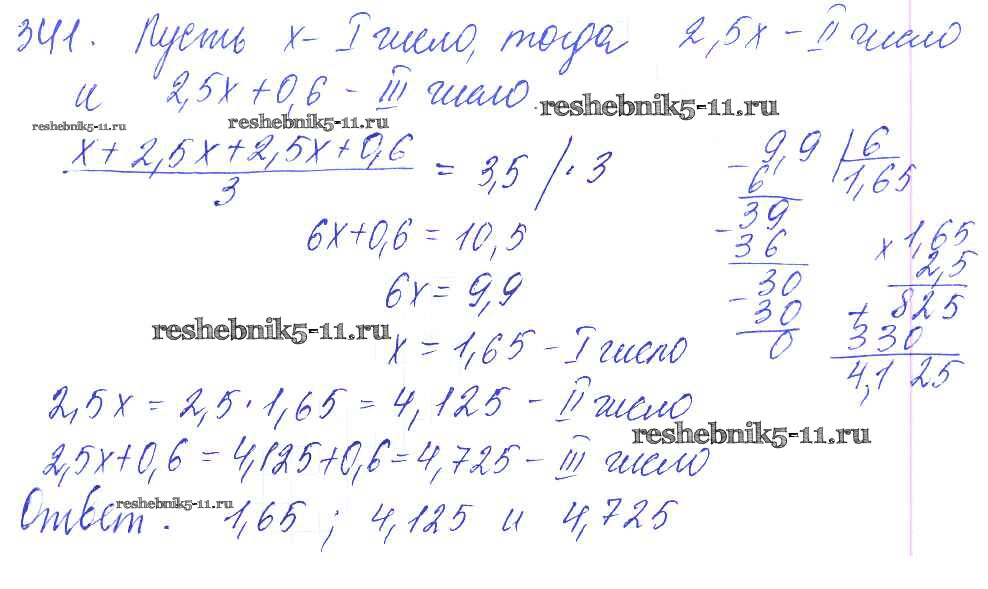 341. Пусть x - I число, тогда 2,5x - II число
и 2,5x + 0,6 - III число.
reshebnik5-11.ru
reshebnik5-11.ru reshebnik5-11.ru
x + 2,5x + 2,5x + 0,6
3
= 3,5 / · 3
6x + 0,6 = 10,5
6x = 9,9
x = 1,65 - I число
reshebnik5-11.ru
- 9,9 | 6
6 1,65
- 39
36
- 30
30
0
x 1,65
2,5
+ 825
330
4,125
2,5x = 2,5 · 1,65 = 4,125 - II число
reshebnik5-11.ru
2,5x + 0,6 = 4,125 + 0,6 = 4,725 - III число
reshebnik5-11.ru
Ответ: 1,65 ; 4,125 и 4,725